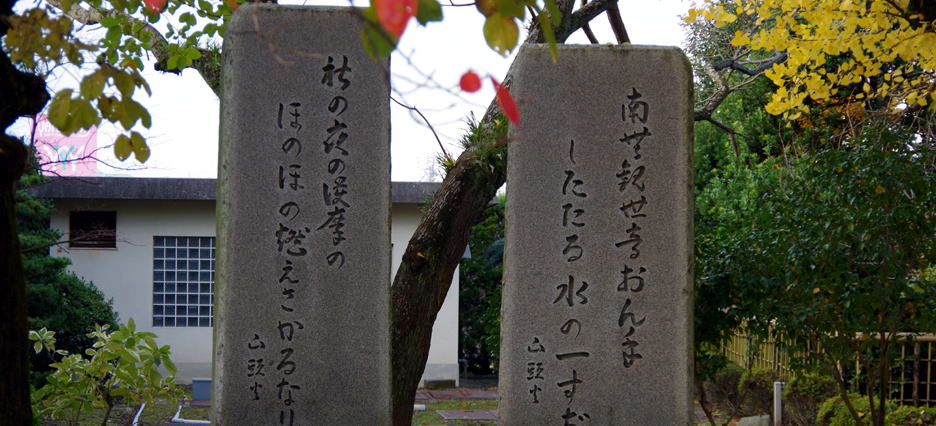 南無観世音おん手
したたる水の一すぢ
山頭火
秋の夜の護摩の
ほのほの燃えさかるなり
山頭火